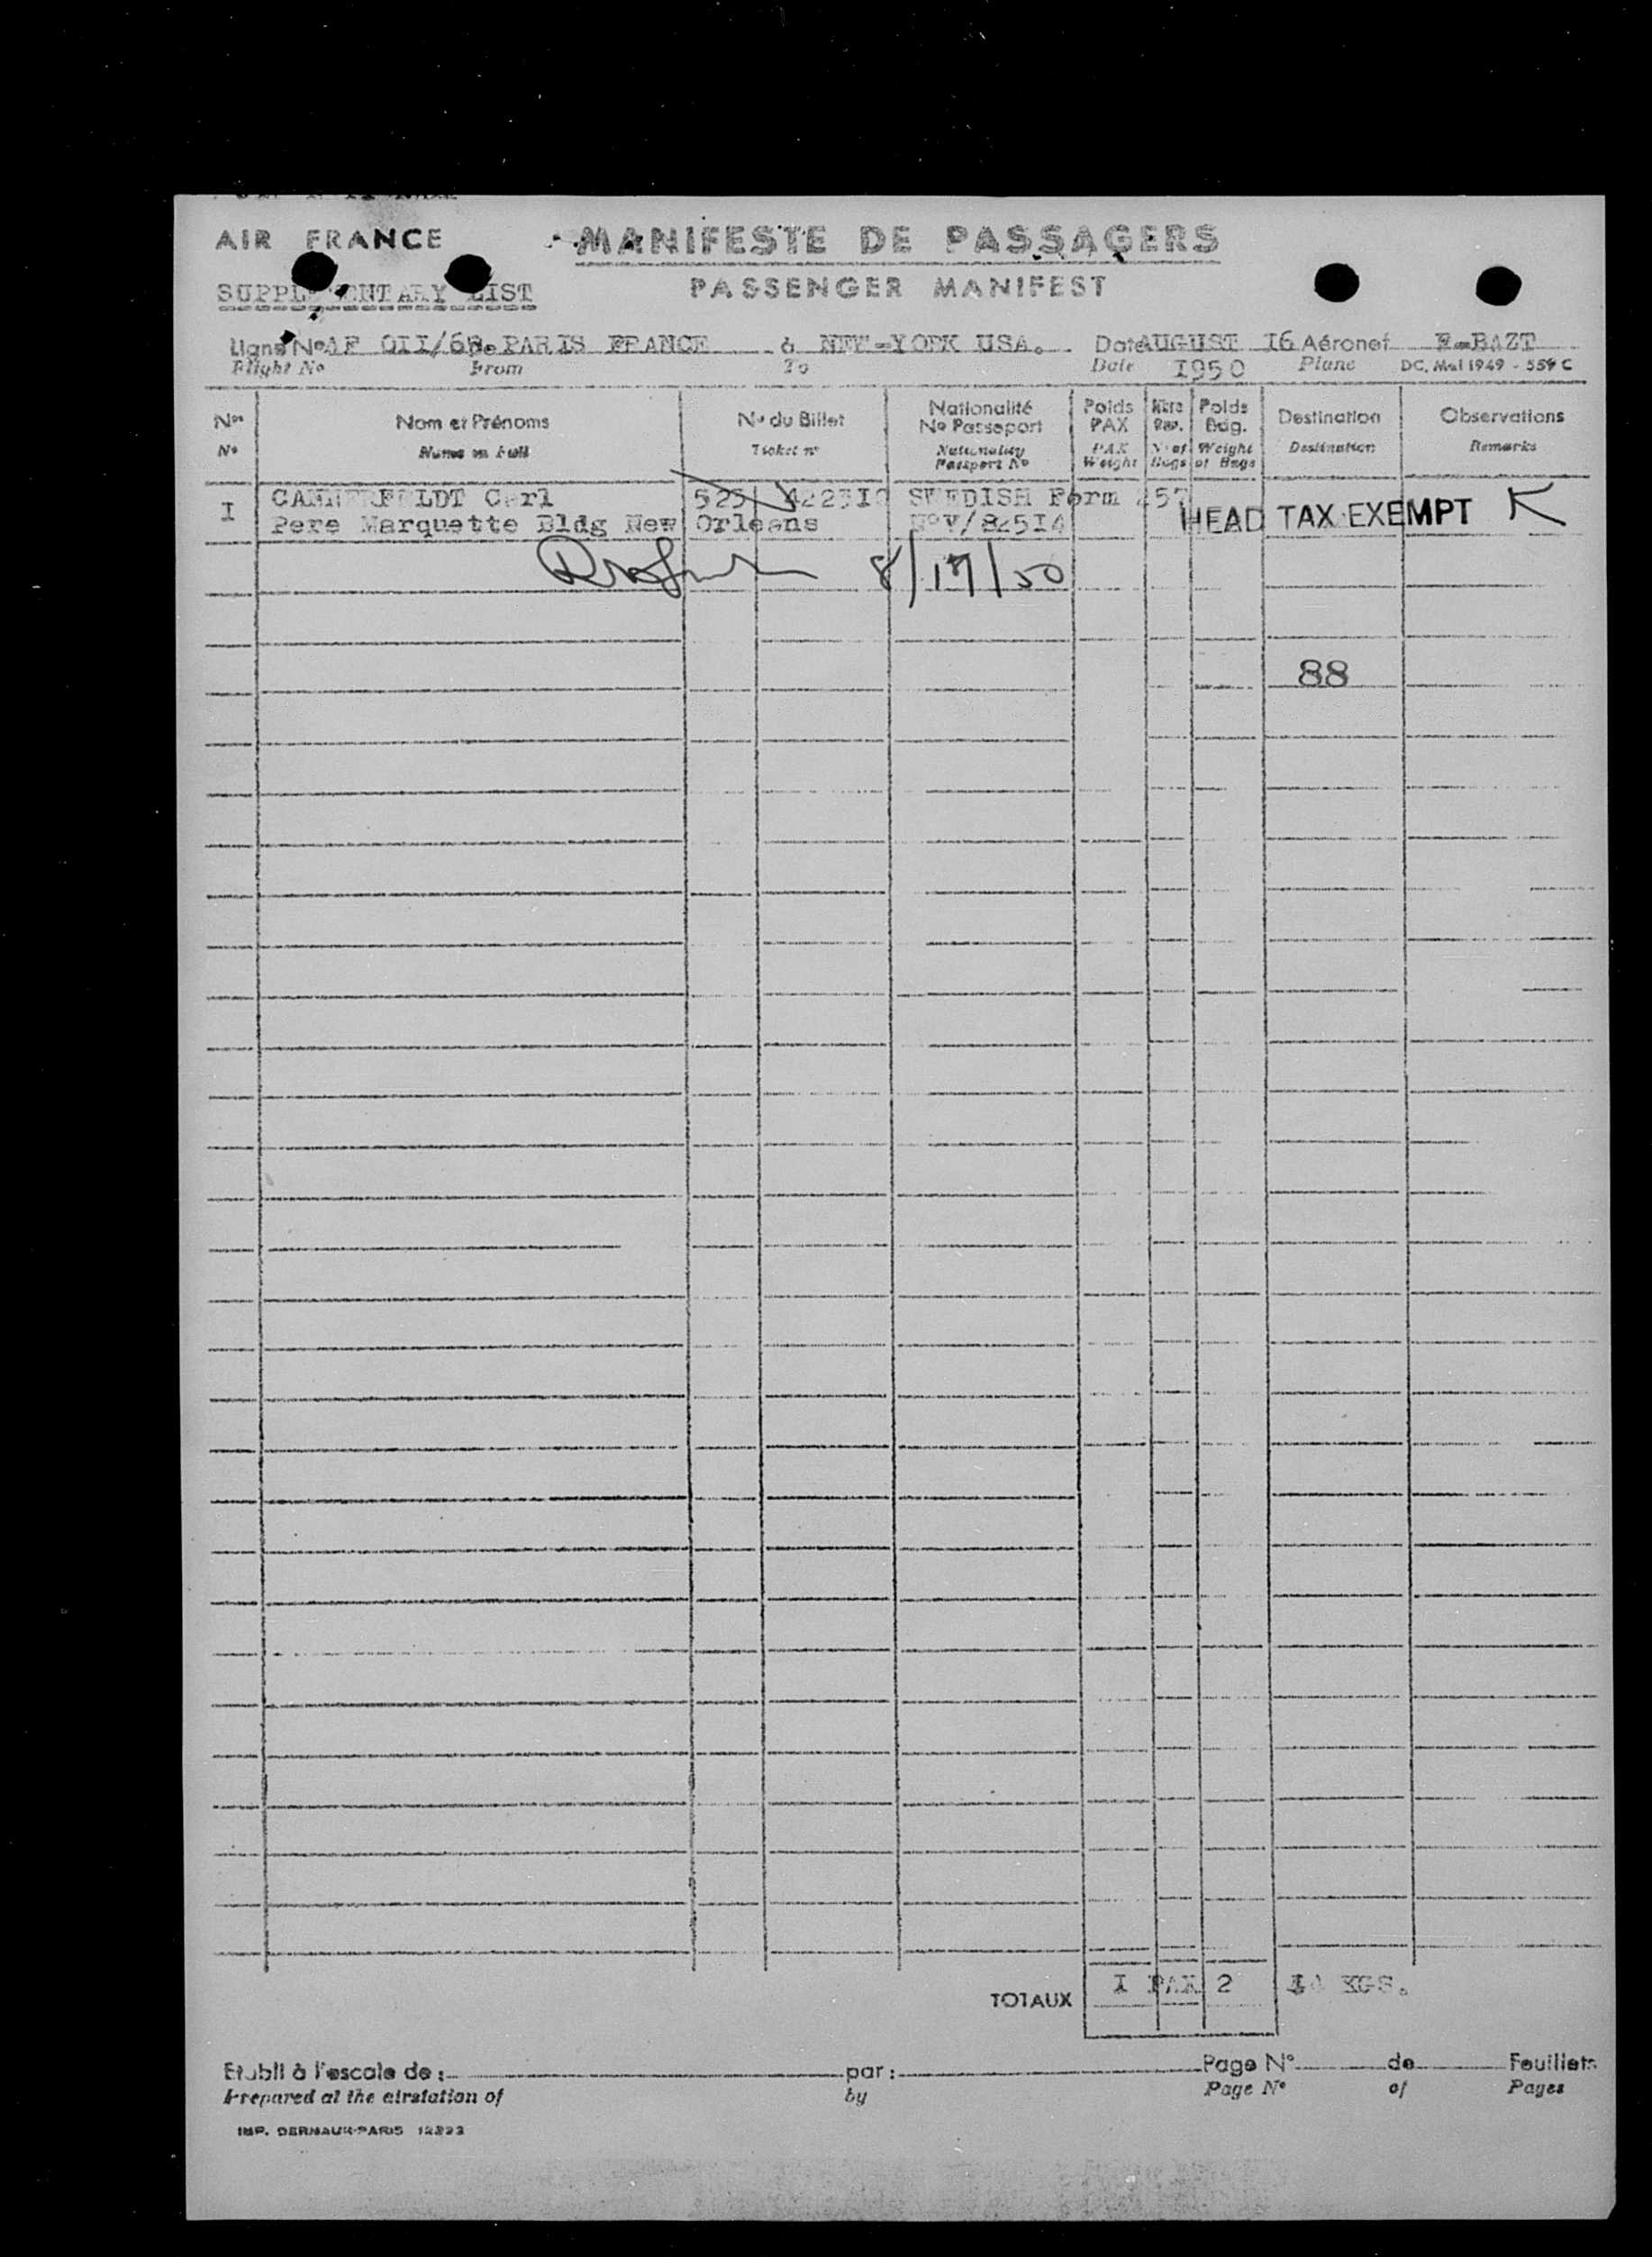 AIR FRANCE
MANIFESTE DE PASSAGERS
SUPPLEMENTARY LIST
PASSENGER MANIFEST
Ligne No AF OII/6B De PARIS FRANCE à NEW-YORK USA. Date AUGUST I6 Aéronef F-BAZT
Flight No From To Date I950 Plane DC. Mal 1949 - 559 C
Nos Nom et Prénoms No du Billet Nationalité No Passeport Poids PAX Nbre Bag. Poids Bag. Destination Observations
No Names in Full Ticket no Nationality Passport No PAX Weight No of Bags Weight of Bags Destination Remarks
I CANNERFELDT Carl 525 SWEDISH Form 257
Pere Marquette Bldg New Orleans No V/84514 HEAD TAX EXEMPT K
8/17/50
88
TOTAUX I PAX 2 KGS.
Etabli à l'escale de : par : Page No de Feuillets
Prepared at the airstation of by Page No of Pages
IMP. DERNAUX-PARIS